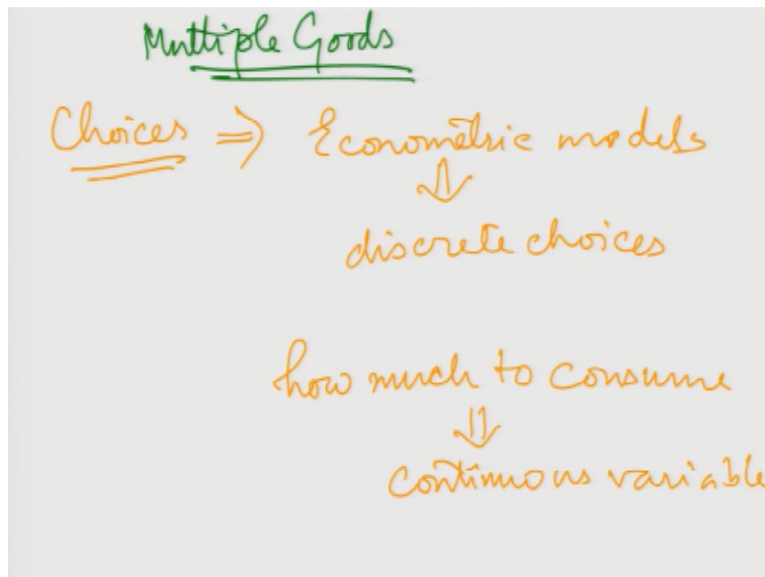 Multiple Goods
Choices ⇒ Econometric models
⇓
discrete choices
how much to consume
⇓
continuous variable